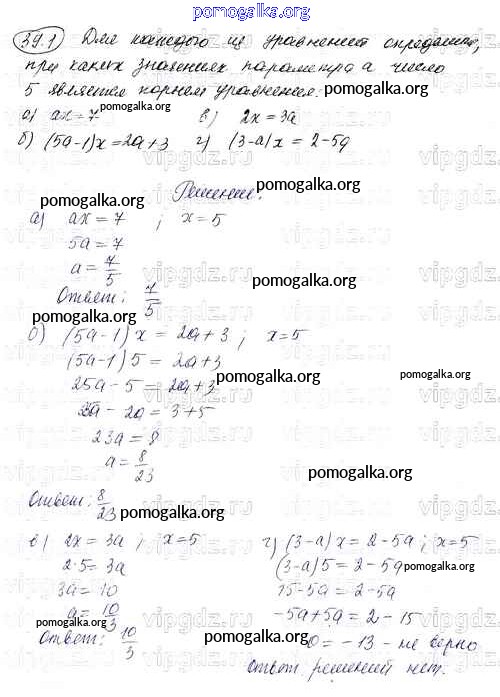 pomogalka.org
39.1 Для каждого из уравнений определите,
при каких значениях параметра а число
5 является корнем уравнения:
а) ax = 7 pomogalka.org в) 2x = 3a
б) (5a-1)x = 2a+3 г) (3-a)x = 2-5a
Решение. pomogalka.org
а) ax = 7 ; x = 5
pomogalka.org
5a = 7
a = 7/5
pomogalka.org
Ответ: 7/5
pomogalka.org
б) (5a-1)x = 2a+3; x=5
(5a-1)5 = 2a+3
25a - 5 = 2a+3
pomogalka.org
pomogalka.org
25a - 2a = 3+5
23a = 8
a = 8/23
pomogalka.org
Ответ: 8/23
pomogalka.org
в) 2x = 3a ; x=5
2·5 = 3a
3a = 10
a = 10/3
Ответ: 10/3
г) (3-a)x = 2-5a ; x=5
(3-a)5 = 2-5a
pomogalka.org
15-5a = 2-5a
pomogalka.org
-5a+5a = 2-15
0 = -13 - не верно
pomogalka.org
Ответ: решений нет.
pomogalka.org
vipgdz.ru